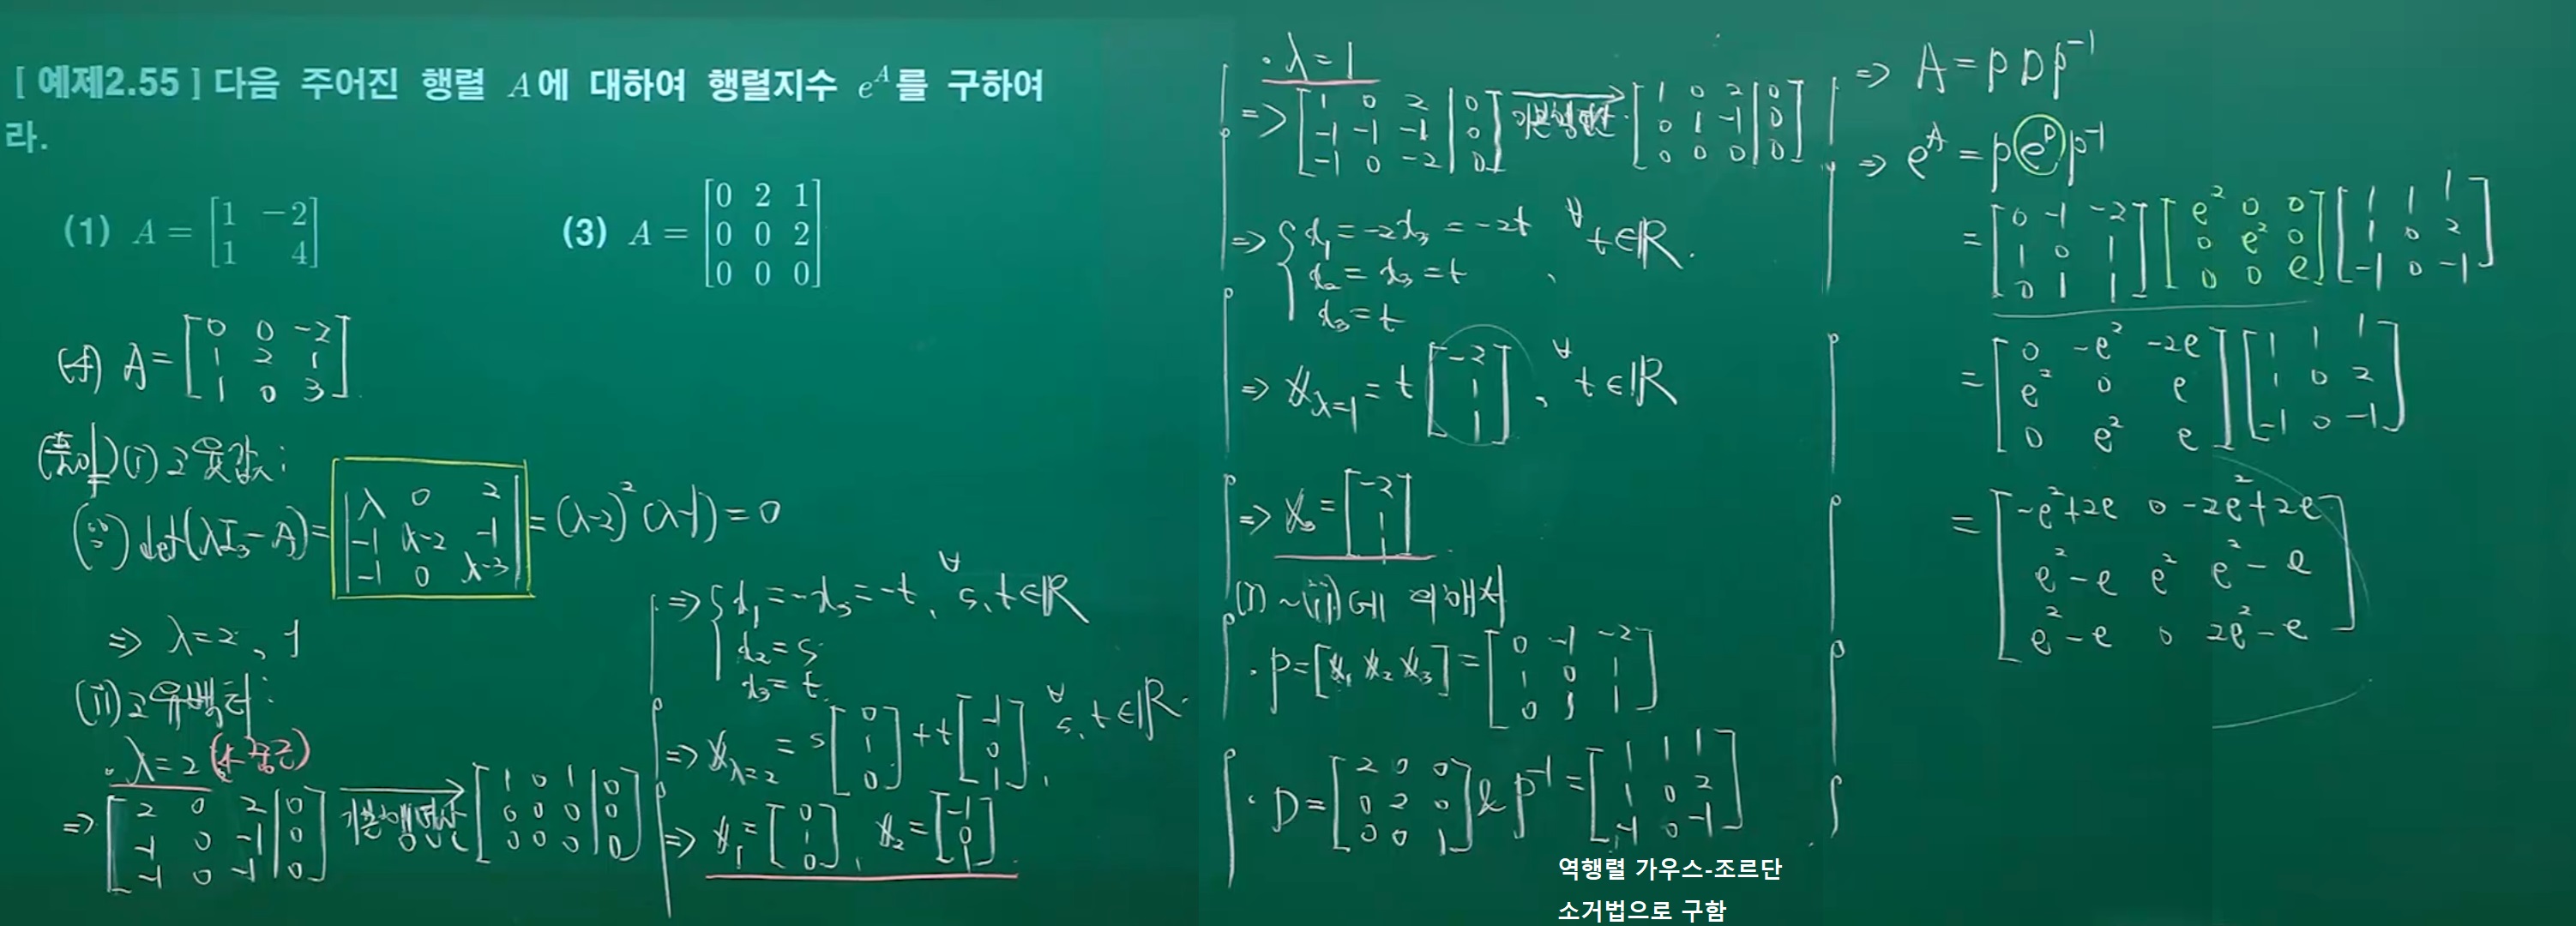 [ 예제2.55 ] 다음 주어진 행렬 A에 대하여 행렬지수 e^A를 구하여
라.
(1) A = [1 -2; 1 4] (3) A = [0 2 1; 0 0 2; 0 0 0]
(4) A = [0 0 -2; 1 2 1; 1 0 3]
(풀이) (i) 고윳값 :
(∵) det(λI₃-A) = |λ 0 2; -1 λ-2 -1; -1 0 λ-3| = (λ-2)²(λ-1) = 0
⇒ λ=2, 1
(ii) 고유벡터 :
· λ=2
⇒ [2 0 2 | 0; -1 0 -1 | 0; -1 0 -1 | 0] 기본행연산 → [1 0 1 | 0; 0 0 0 | 0; 0 0 0 | 0]
⇒ { x₁ = -x₃ = -t, ∀ s, t ∈ ℝ
x₂ = s
x₃ = t
⇒ x_λ=2 = s[0; 1; 0] + t[-1; 0; 1], ∀ s, t ∈ ℝ.
⇒ x₁ = [0; 1; 0], x₂ = [-1; 0; 1]
· λ=1
⇒ [1 0 2 | 0; -1 -1 -1 | 0; -1 0 -2 | 0] 기본행연산 → [1 0 2 | 0; 0 1 -1 | 0; 0 0 0 | 0]
⇒ { x₁ = -2x₃ = -2t ∀ t ∈ ℝ.
x₂ = x₃ = t ,
x₃ = t
⇒ x_λ=1 = t[-2; 1; 1], ∀ t ∈ ℝ
⇒ x₃ = [-2; 1; 1]
(i) ~ (ii)에 의해서
· P = [x₁ x₂ x₃] = [0 -1 -2; 1 0 1; 0 1 1]
· D = [2 0 0; 0 2 0; 0 0 1] & P⁻¹ = [1 1 1; 1 0 2; -1 0 -1]
역행렬 가우스-조르단
소거법으로 구함
⇒ A = PDP⁻¹
⇒ e^A = P e^D P⁻¹
= [0 -1 -2; 1 0 1; 0 1 1] [e² 0 0; 0 e² 0; 0 0 e] [1 1 1; 1 0 2; -1 0 -1]
= [0 -e² -2e; e² 0 e; 0 e² e] [1 1 1; 1 0 2; -1 0 -1]
= [-e²+2e 0 -2e²+2e; e²-e e² e²-e; e²-e 0 2e²-e]